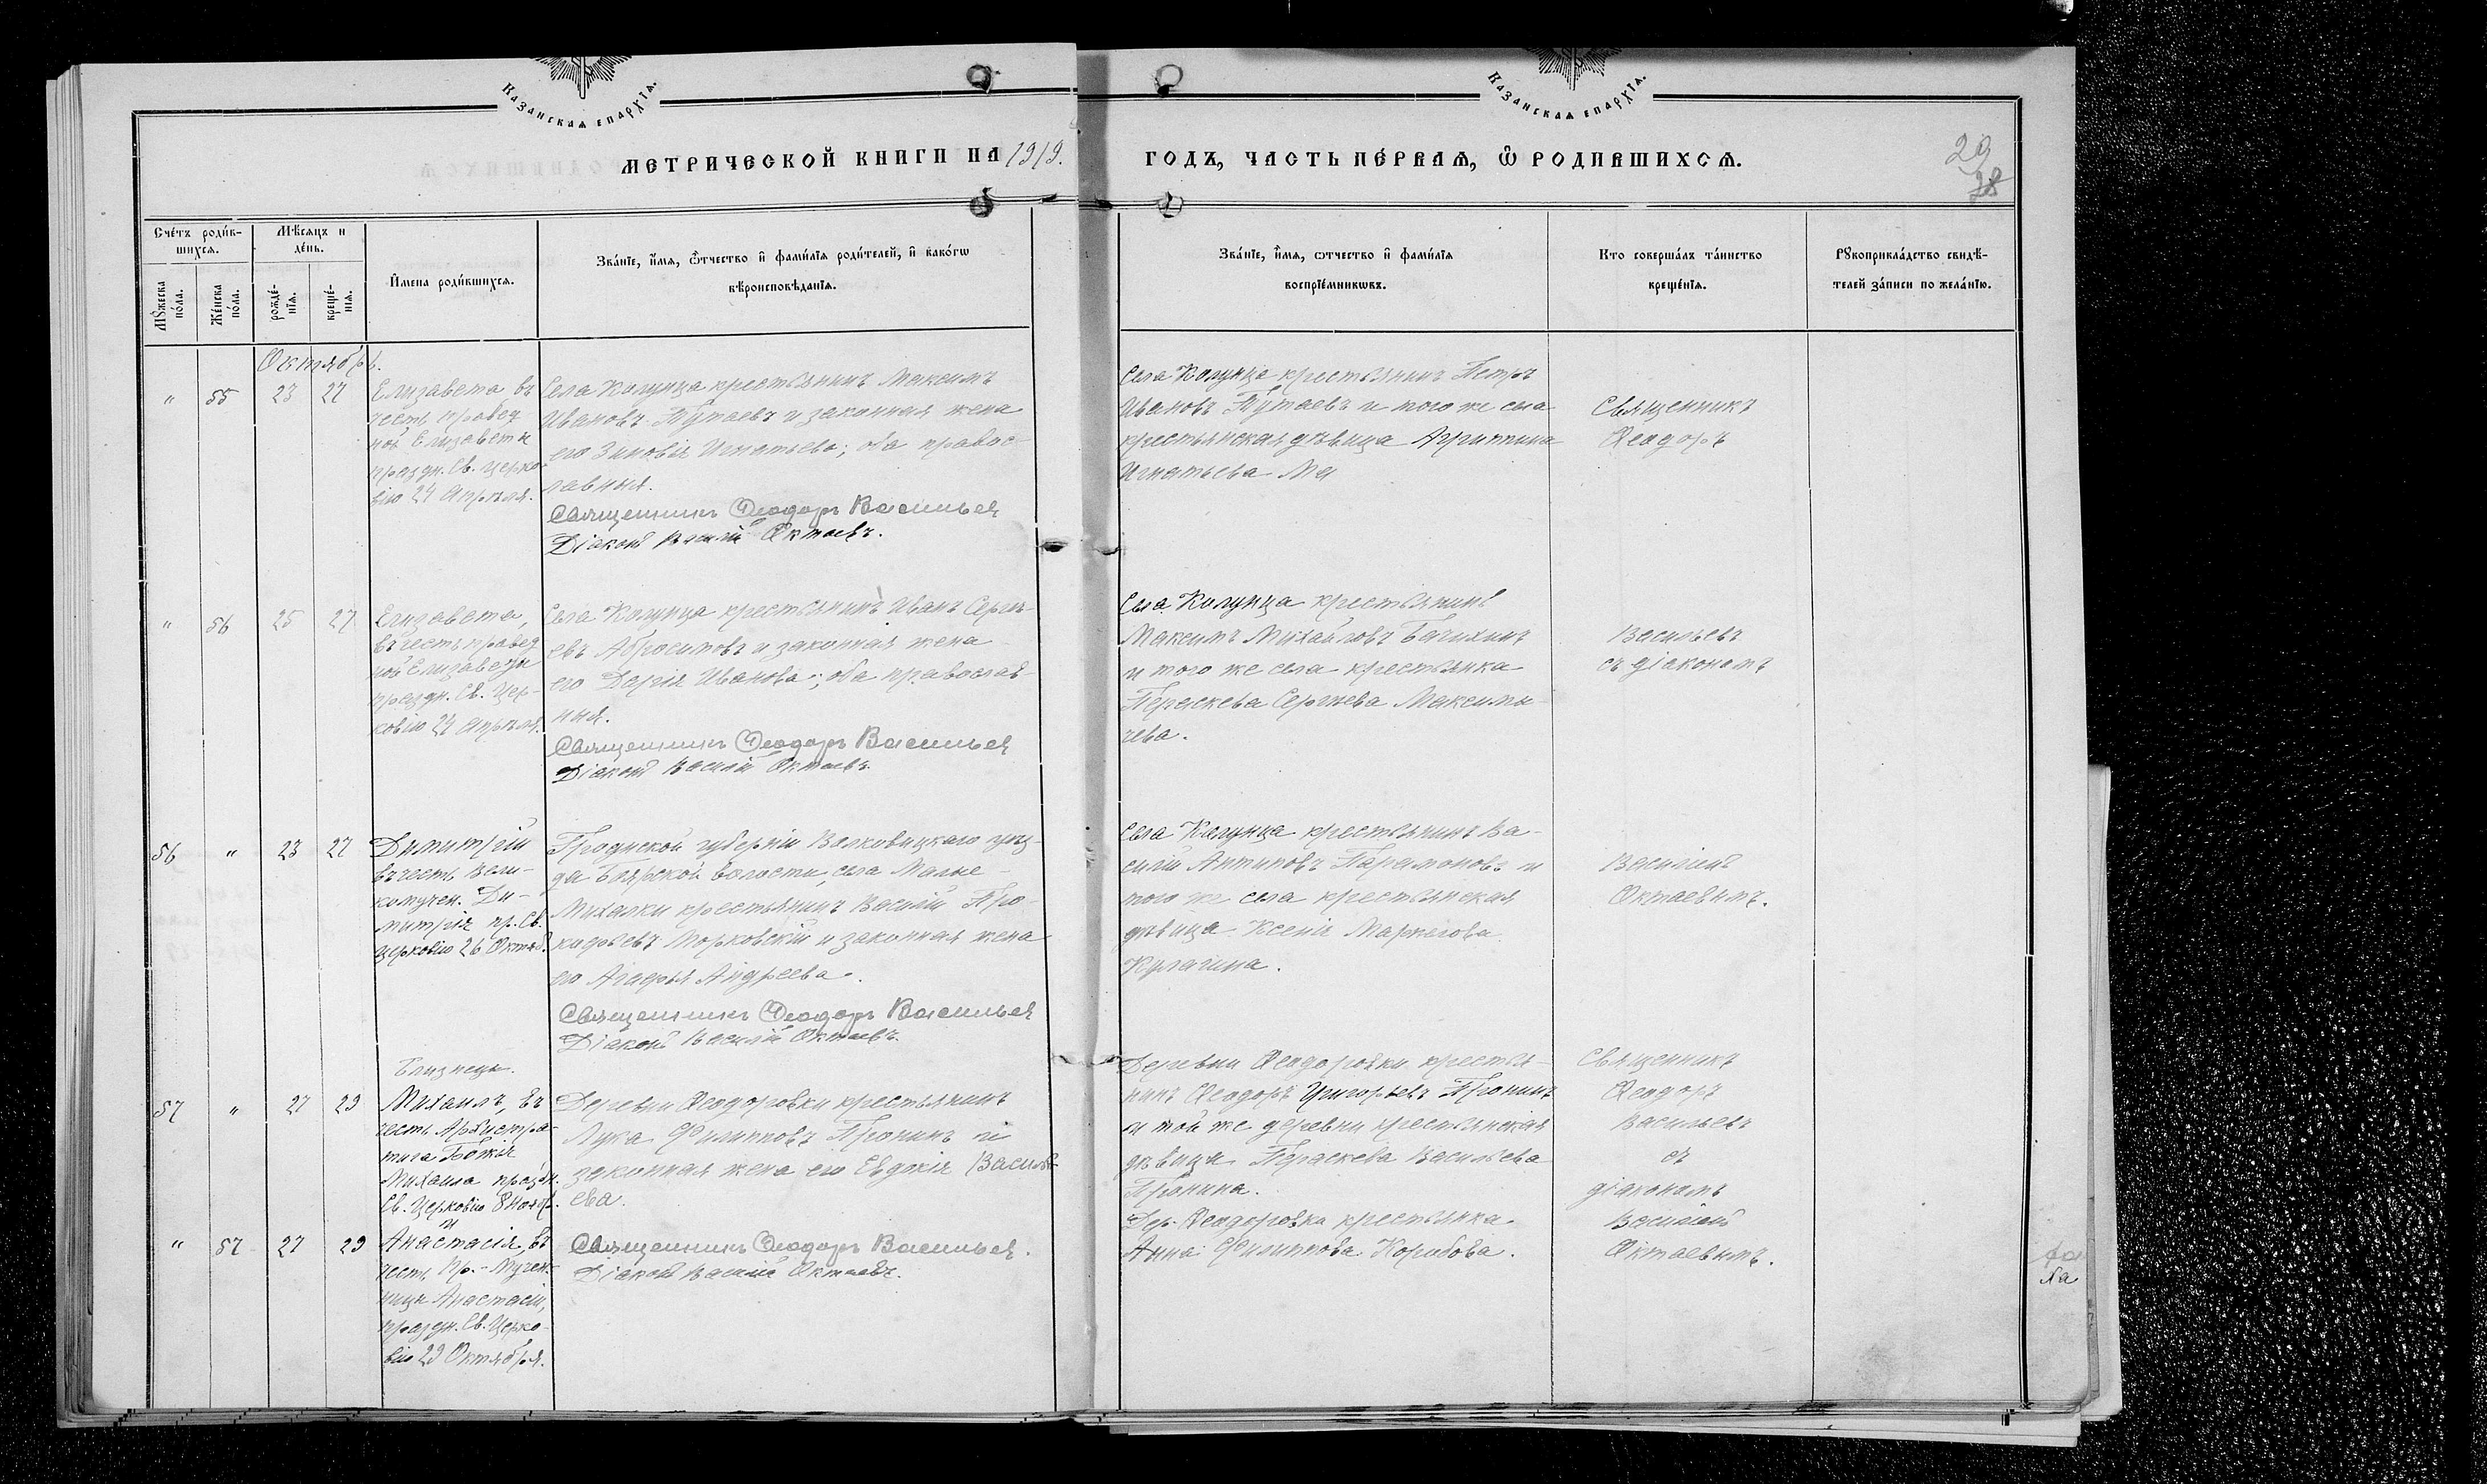 Казанская епархїѧ.
Казанская епархїѧ.
МЕТРИЧЕСКОЙ КНИГИ НА 1919.
ГОДЪ, ЧАСТЬ ПЕ́РВАѦ, Ѽ РОДИВШИХСѦ.
29
28
Сче́тъ роди́в-
шихсѧ.
Мѣсѧцъ и
де́нь.
Мꙋжеска
по́ла.
Же́нска
по́ла.
рожде́-
нїѧ.
креще́-
нїѧ.
И҆мена роди́вшихсѧ.
Зва́нїе, и҆́мѧ, ѻ҆́тчество и҆ фами́лїѧ роди́телей, и҆ како́гѡ
вѣроисповѣ́данїѧ.
Зва́нїе, и҆́мѧ, ѻтчество и҆ фами́лїѧ
воспрїе́мникѡвъ.
Кто соверша́лъ та́инство
креще́нїѧ.
Рꙋкоприкла́дство свидѣ́-
телей за́писи по жела́нїю.
Октябрь.
" 55 23 27
Елизавета въ
честь правед
ной Елизаветы
праздн. Св. Церко-
вію 24 Апрѣля.
Села Колунца крестьянинъ Максимъ
Ивановъ Путаевъ и законная жена
его Зиновія Игнатьева; оба правос-
лавныя.
Священникъ Ѳеодоръ Васильев
Діаконъ Василій Октаевъ.
Села Колунца крестьянинъ Петръ
Ивановъ Путаевъ и того же села
крестьянская дѣвица Агриппина
Игнатьева Ма
Священникъ
Ѳеодоръ
" 56 25 27
Елизавета,
въ честь правед
ной Елизаветы
праздн. Св. Цер-
ковію 24 Апрѣля.
Села Колунца крестьянинъ Иванъ Серге-
евъ Абросимовъ и законная жена
его Дарія Иванова; оба православ-
ныя.
Священникъ Ѳеодоръ Васильев
Діаконъ Василій Октаевъ.
Села Колунца крестьянинъ
Максимъ Михайловъ
и того же села крестьянка
Параскева Сергѣева Максимы-
чева.
Васильевъ
съ діакономъ
56 " 23 27
Димитрій
въ честь вели-
комучен. Ди-
митрія пр. Св.
Церковію 26 Октяб.
Гродиской губерніи Волковицкаго уѣз-
да Боярской волости, села Малые-
Михалки крестьянинъ Василій Про-
кофьевъ Морковскій и законная жена
его Агафья Андреева.
Священникъ Ѳеодоръ Васильев
Діаконъ Василій Октаевъ.
Села Колунца крестьянинъ Ва-
силій Антиповъ Парамоновъ и
того же села крестьянская
дѣвица Ксенія Маркелова
Кулагина.
Василіемъ
Октаевымъ.
Близнецы.
57 " 27 29
Михаилъ, въ
честь Архистра-
тига Божія
Михаила праздн.
Св. Церковію 8 Нояб.
и
Деревни Ѳеодоровки крестьянинъ
Лука Филипповъ Пронинъ и
законная жена его Евдокія Василь-
ева.
Деревни Ѳеодоровки крестья-
нинъ Ѳеодоръ Григорьевъ Пронинъ
и той же деревни крестьянская
дѣвица Параскева Васильева
Пронина.
Священникъ
Ѳеодоръ
Васильевъ
съ
діакономъ
Василіемъ
Октаевымъ.
" 57 27 29
Анастасія, въ
честь Пр.-Мучен-
ницы Анастасіи,
праздн. Св. Церко-
вію 29 Октября.
Священникъ Ѳеодоръ Васильев.
Діаконъ Василій Октаевъ.
Дер. Ѳеодоровка крестьянка
Анна Филиппова.